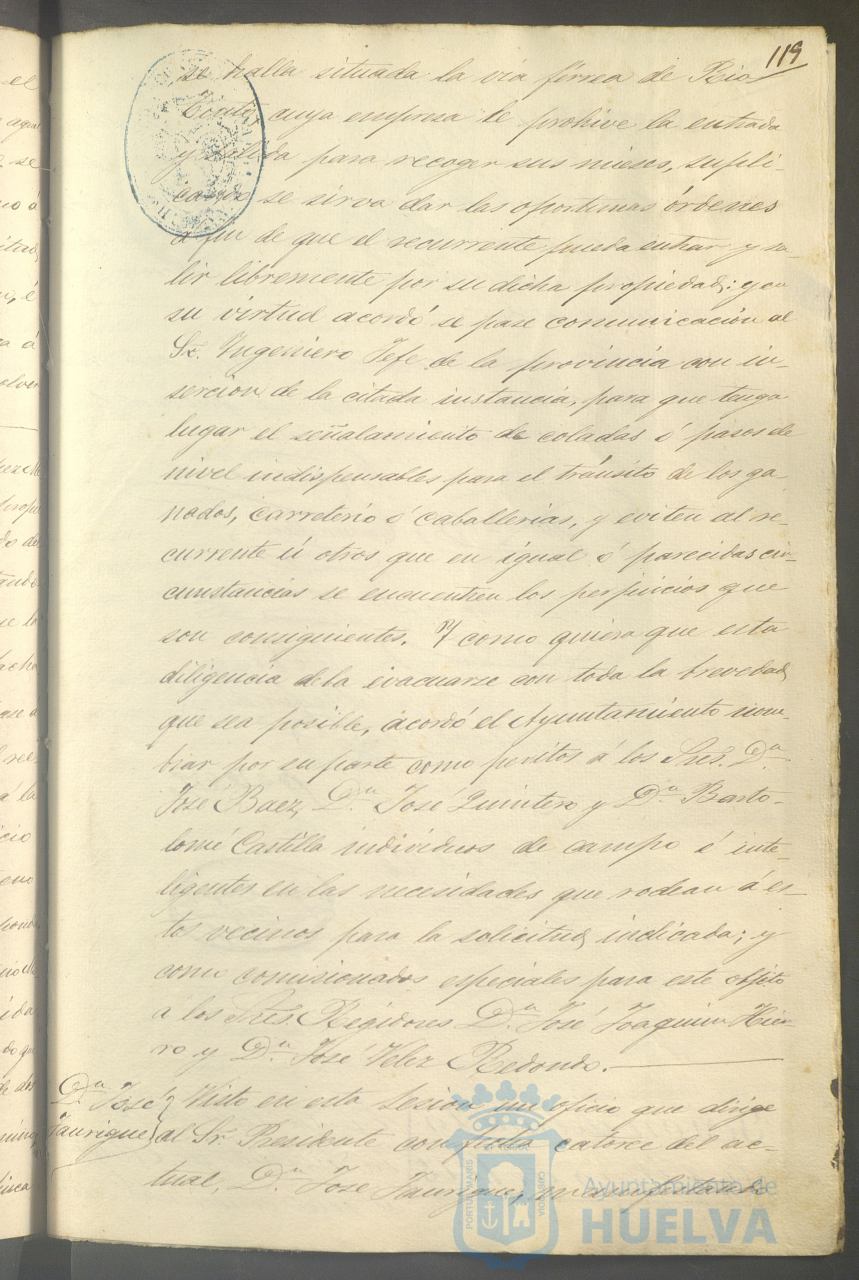 119
se halla situada la vía férrea de Rio
Tinto, cuya empresa le prohive la entrada
y salida para recoger sus mieses, supli-
cando se sirva dar las oportunas órdenes
a fin de que el recurrente pueda entrar y sa-
lir libremente por su dicha propiedad; y en
su virtud acordó se pase comunicación al
Sr. Ingeniero Jefe de la provincia con in-
serción de la citada instancia, para que tenga
lugar el señalamiento de coladas ó pasos de
nivel indispensables para el tránsito de los ga-
nados, carreterio ó caballerias, y eviten al re-
currente ú otros que en igual ó parecidas cir-
cunstancias se encuentren los perjuicios que
son consiguientes. Y como quiera que esta
diligencia deba evacuarse con toda la brevedad
que sea posible, acordó el Ayuntamiento nom-
brar por su parte como peritos á los Sres. Dn
José Baez, Dn José Quintero y Dn Barto-
lomé Castilla individuos de campo é inte-
ligentes en las necesidades que rodean á es-
tos vecinos para la solicitud indicada; y
como comisionados especiales para este objeto
á los Sres. Regidores Dn José Joaquin Hier-
ro y Dn José Velez Redondo.
Dn José
Taurigue
Visto en esta sesion un oficio que dirige
al Sr Presidente con fecha catorce del ac-
tual, Dn José Taurigue, manifestando
PORTUS MARIS
CUSTODIA
Ayuntamiento de
HUELVA